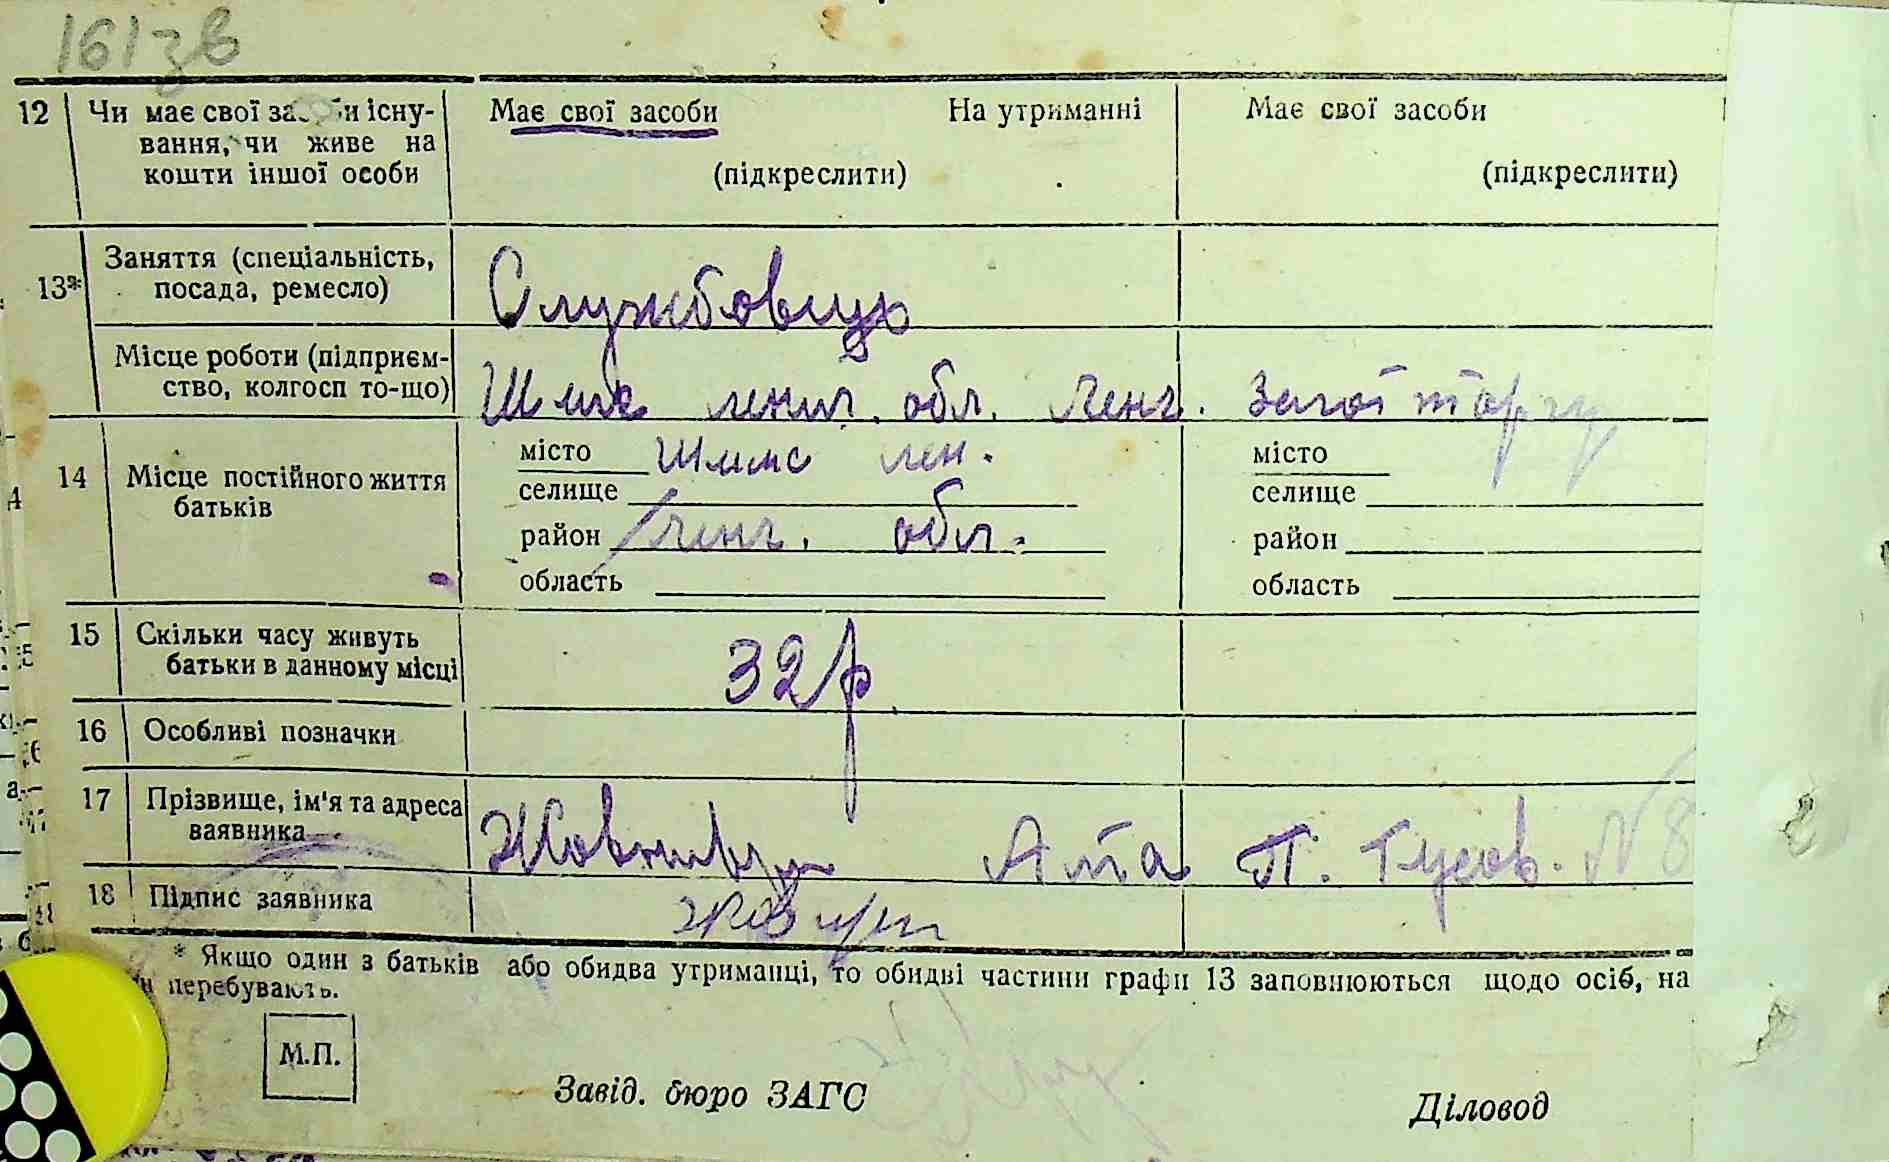 161зв
12 Чи має свої засоби існу- Має свої засоби На утриманні Має свої засоби
вання, чи живе на
кошти іншої особи (підкреслити) (підкреслити)
Заняття (спеціальність,
13* посада, ремесло) Службовець
Місце роботи (підприєм-
ство, колгосп то-що) обл. Ленг.
14 Місце постійного життя місто лен. місто
батьків селище селище
район Ленг. обл. район
область область
15 Скільки часу живуть 32 р
батьки в данному місці
16 Особливі позначки
17 Прізвище, ім'я та адреса
заявника П. Гусов. N 8
18 Підпис заявника
* Якщо один з батьків або обидва утриманці, то обидві частини графи 13 заповнюються щодо осіб, на
перебувають.
М.П.
Завід. бюро ЗАГС Діловод